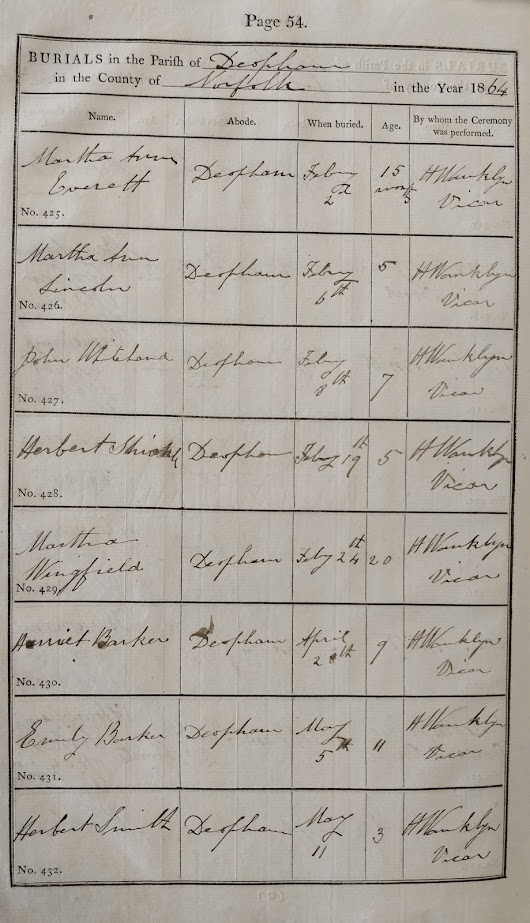 Page 54.
BURIALS in the Parish of Deopham
in the County of Norfolk in the Year 1864
Name. Abode. When buried. Age. By whom the Ceremony was performed.
Martha Ann Deopham Feby 15 H Wanklyn
Everett 2d months Vicar
No. 425.
Martha Ann Deopham Feby 5 H Wanklyn
Lincoln 6th Vicar
No. 426.
John Whitehand Deopham Feby H Wanklyn
8th 7 Vicar
No. 427.
Herbert Deopham Feby 19th 5 H Wanklyn
Vicar
No. 428.
Martha Deopham Feby 24th 20 H Wanklyn
Wingfield Vicar
No. 429.
Harriet Barker Deopham April 9 H Wanklyn
28th Vicar
No. 430.
Emily Barker Deopham May 11 H Wanklyn
5th Vicar
No. 431.
Herbert Smith Deopham May 3 H Wanklyn
11 Vicar
No. 432.